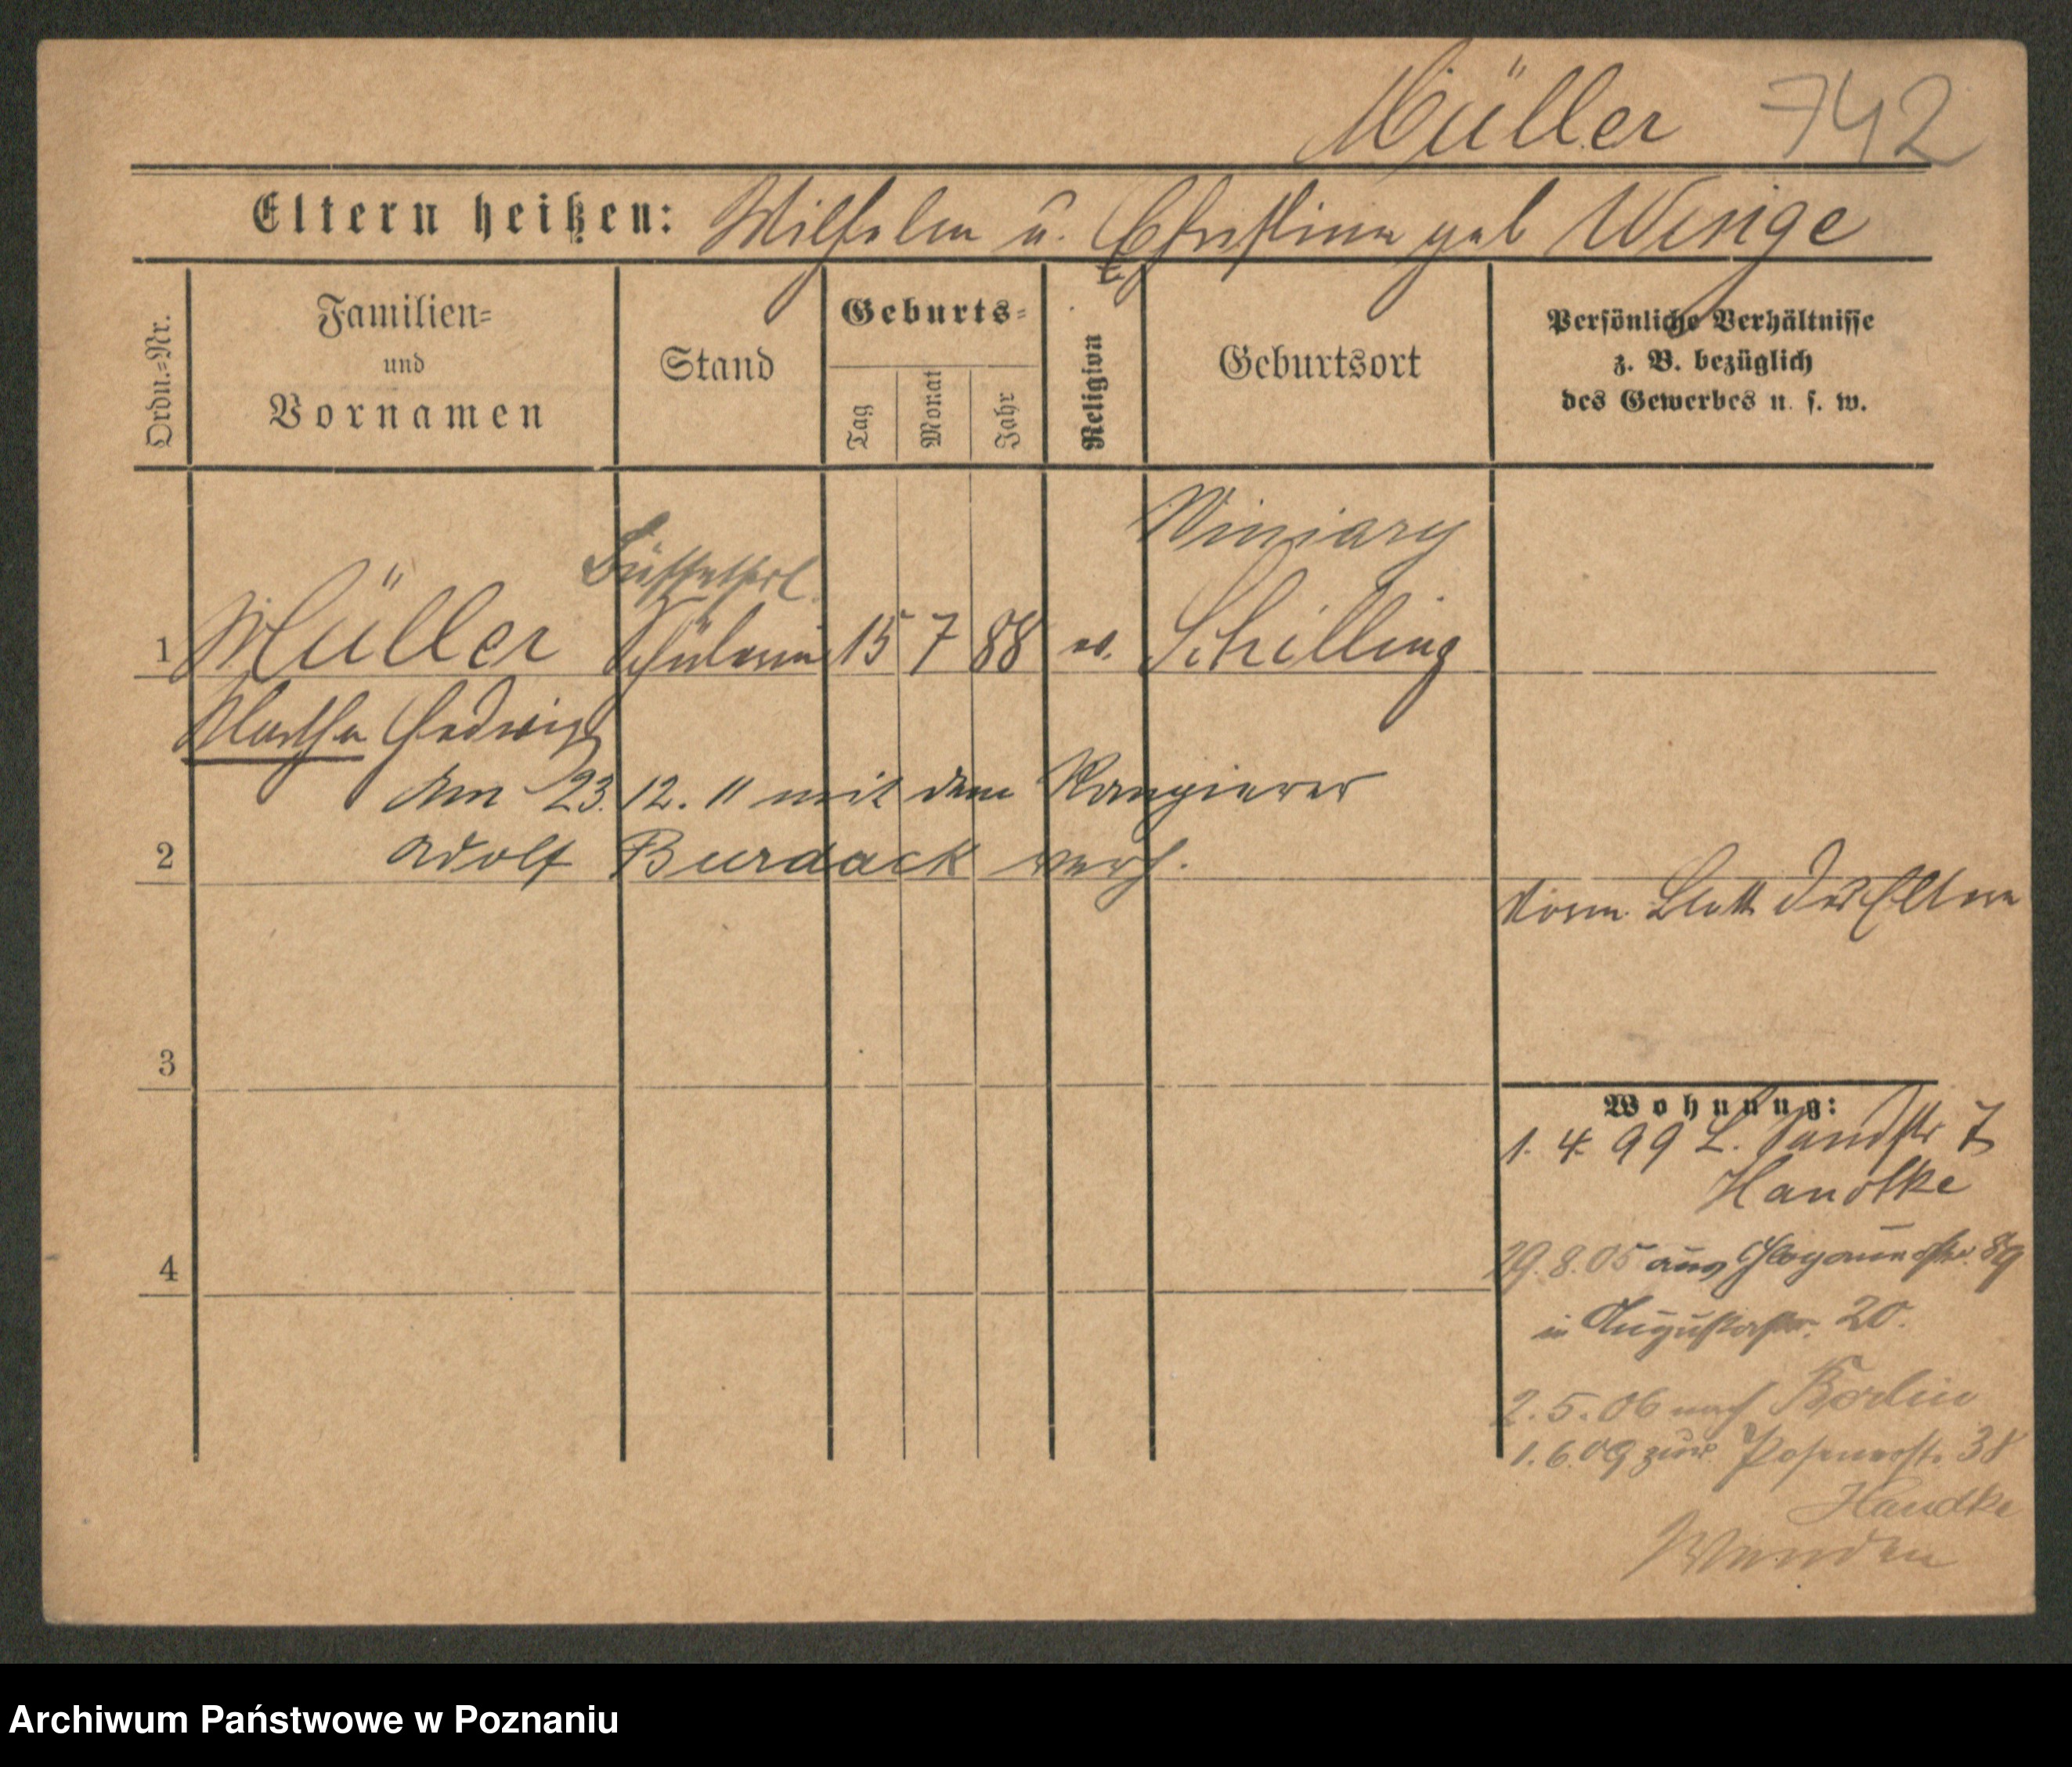 Müller 742
Eltern heißen: Wilhelm u. Christine geb Wenige
Ordn.-Nr.
Familien-
und
Vornamen
Stand
Geburts-
Tag
Monat
Jahr
Religion
Geburtsort
Persönliche Verhältnisse
z. B. bezüglich
des Gewerbes u. s. w.
Winiary
1 Müller Schülerin 15 7 88 ev. Schilling
Martha Hedwig
Am 23. 12. 11 mit dem Rangierer
2 Adolf Burdack verh.
Blatt der Eltern
3
Wohnung:
1. 4. 99 L. Sandstr 7
Handtke
4
29. 8. 05 aus Glogauerstr. 89
in Augustastr. 20.
2. 5. 06 nach Berlin
1. 6. 09 zur. Posenerstr. 38
Handke
Archiwum Państwowe w Poznaniu